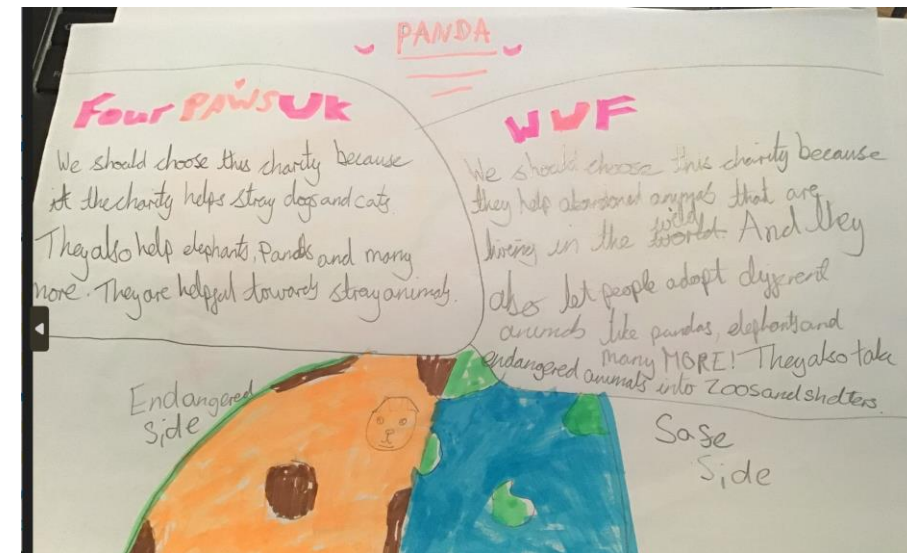 PANDA
Four PAWS UK
We should choose this charity because
it the charity helps stray dogs and cats.
They also help elephants, Pandas and many
more. They are helpful towards stray animals.
WWF
We should choose this chairity because
they help abandoned animals that are
living in the wild. And they
also let people adopt different
animals like pandas, elephants and
many MORE! They also take
endangered animals into Zoos and shelters.
Endangered
side
Safe
Side